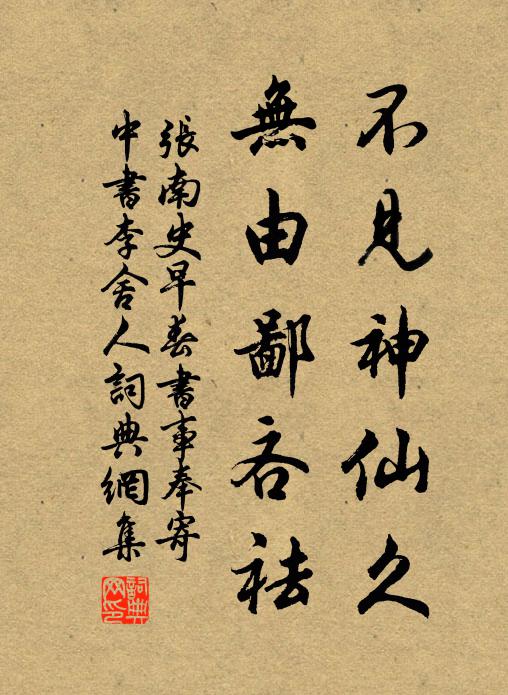 不見神仙久
無由鄙吝祛
張南史早春書事奉寄
中書李舍人詞典網集
詞典網印